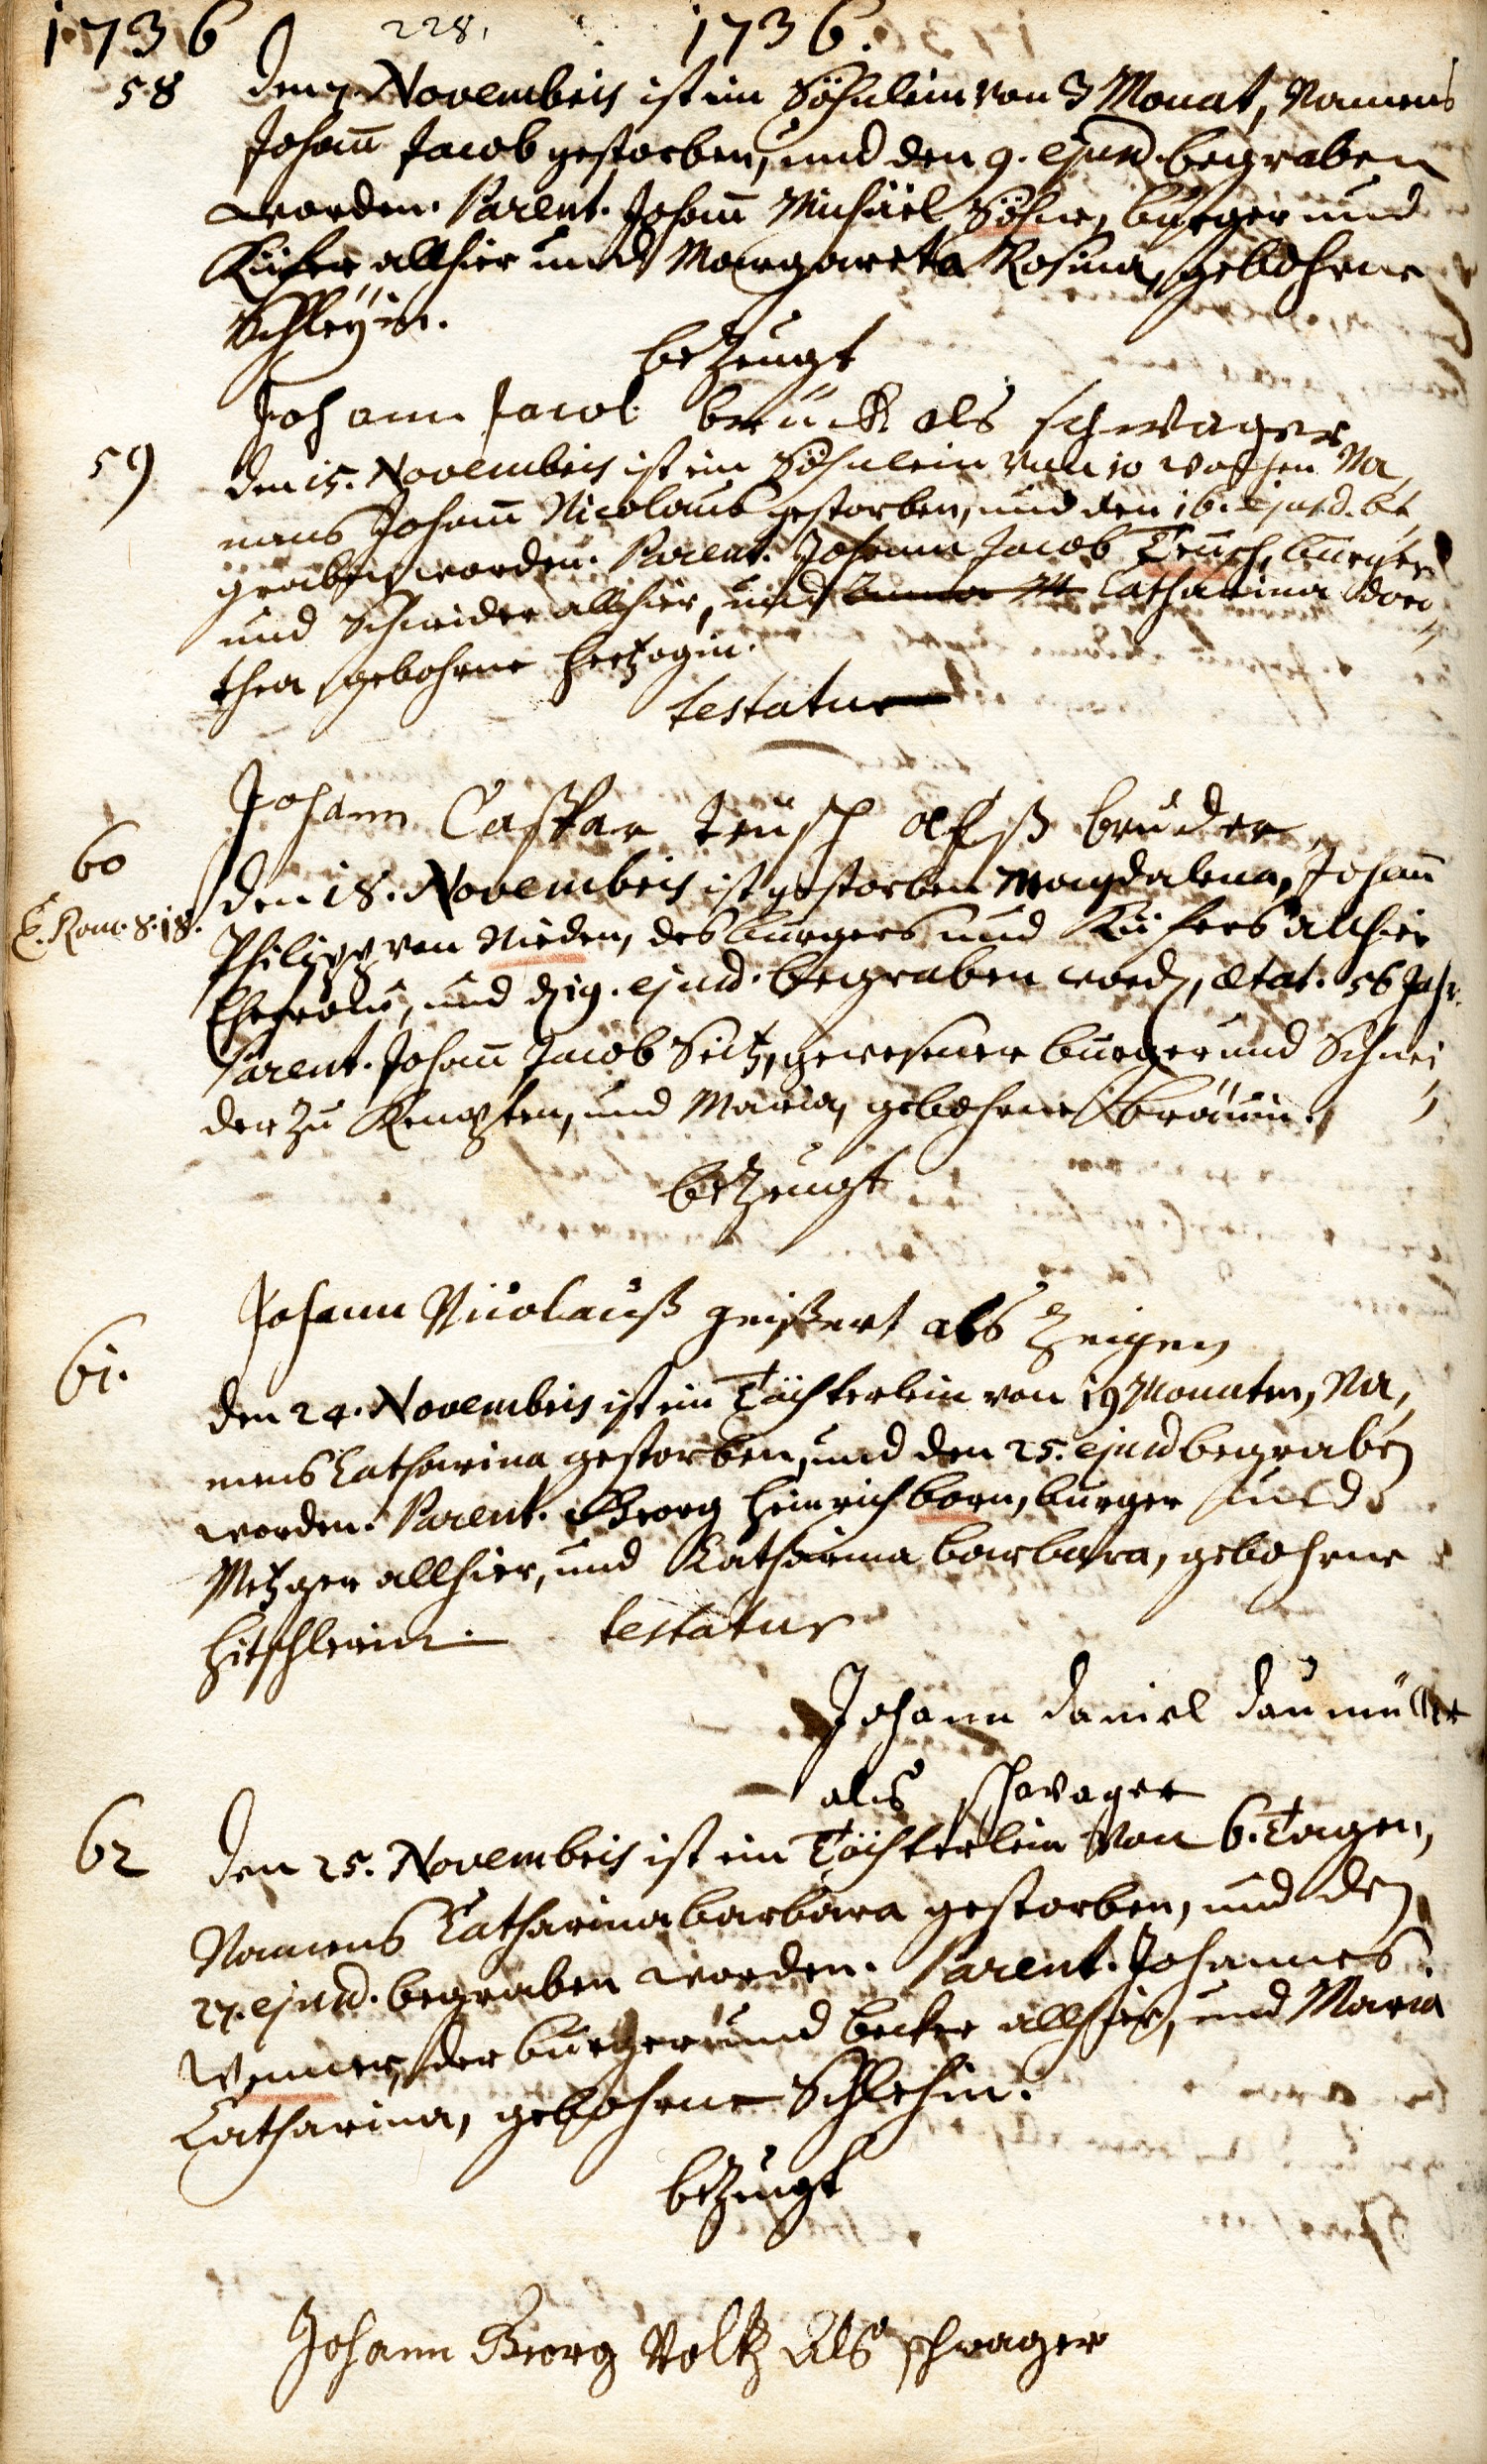 1736 228. 1736.
58 den 7. Novembris ist ein Söhnlein von 3 Monat, Namens
Johann Jacob gestorben, und den 9. ejusd. begraben
worden. Parent. Johann Michäel Söhne, burger und
Küfer allhier und Margareta Rosina, gebohrne
Schleÿin.
bezeugt
Johann Jacob brück als schwager
59 den 15. Novembris ist ein Söhnlein von 10 wochen Na,
mens Johann Nicolaus gestorben, und den 16. ejusd. be,
graben worden. Parent. Johann Jacob Teusch, burger
und Schneider allhier, und Catharina Doro,
thea, gebohrne Hertzogin.
testatur
Johann Caspar teusch alß bruder
60 den 18. Novembris ist gestorben Magdalena, Johann
E. Rom. 8. 18. Philipp von Nieden, des burgers und Küfers allhier
Ehefrau, und d. 19. ejusd. begraben word., ætat. 56 Jahr.
Parent. Johann Jacob Seitz, gewesener burger und Schnei,
der zu Kempten, und Maria, gebohrne Bräunin.
bezeugt
Johann Nicolauß geißert als Zeigen
61. den 24. Novembris ist ein Töchterlein von 19 Monaten, Na,
mens Catharina gestorben, und den 25. ejusd begraben
worden. Parent. Georg Heinrich born, burger und
Metzger allhier, und Catharina barbara, gebohrne
Hitschlerin. testatur
Johann Daniel Daumüller
als schwager
62 den 25. Novembris ist ein Töchterlein von 6. Tagen,
Namens Catharina barbara gestorben, und den
27. ejusd. begraben worden. Parent. Johannes
Wenner, der burger und becker allhier, und Maria
Catharina, gebohrne Schlehin.
bezeugt
Johann Georg Voltz als schwager